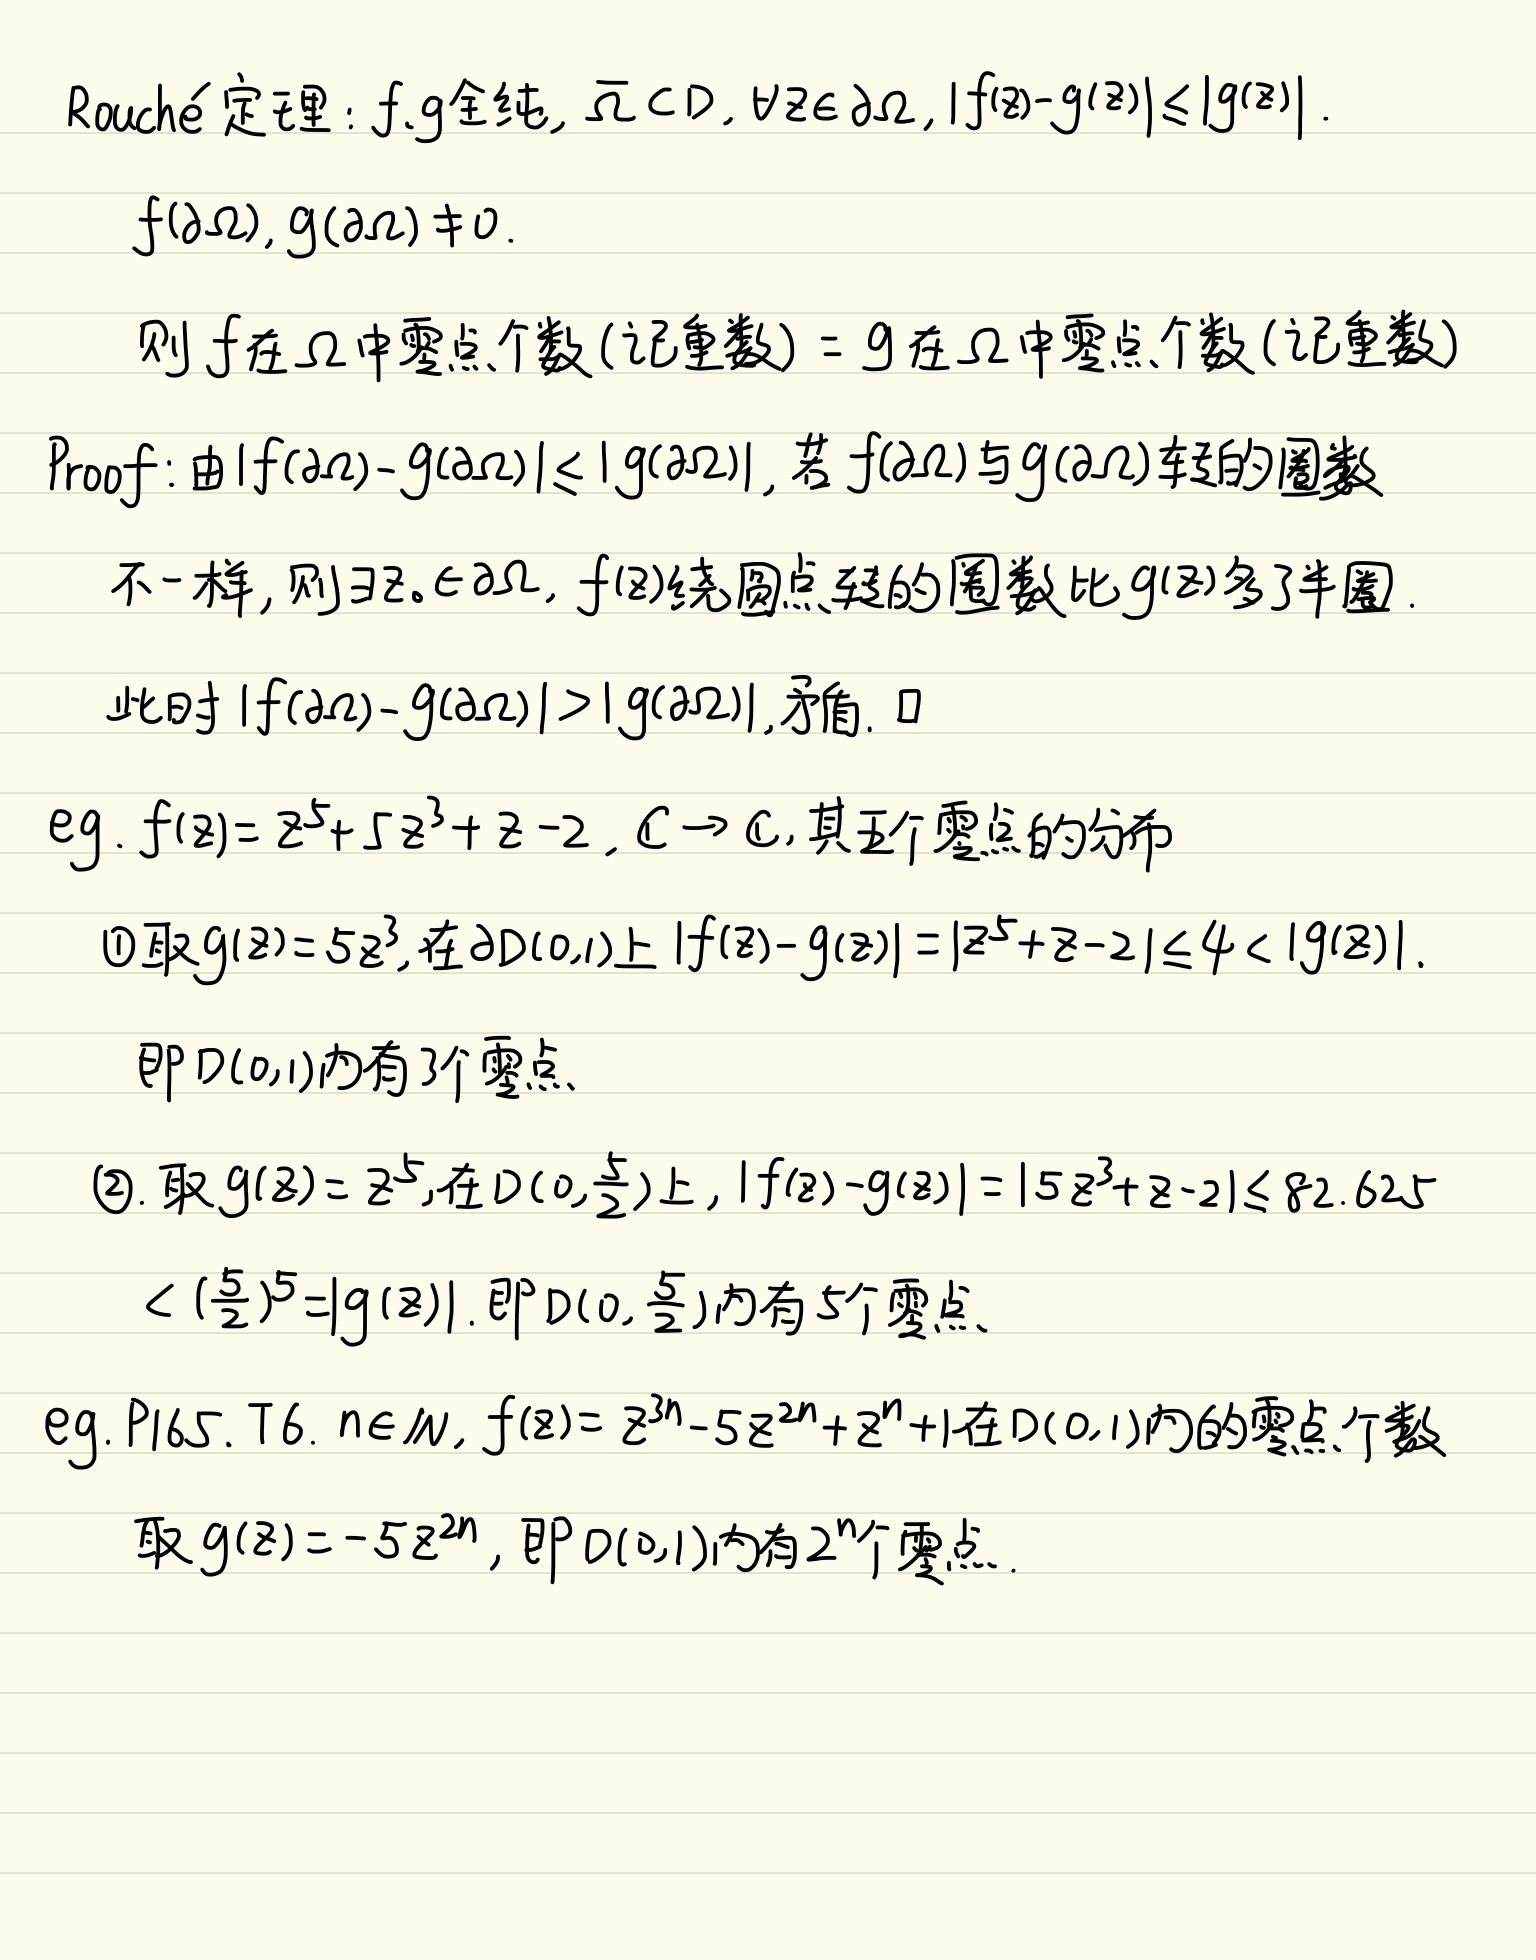 Rouché定理:f.g全纯, Ω̅⊂D, ∀z∈∂Ω, |f(z)-g(z)|≤|g(z)|.
f(∂Ω), g(∂Ω)≠0.
则f在Ω中零点个数(记重数) = g在Ω中零点个数(记重数)
Proof:由|f(∂Ω)-g(∂Ω)|≤|g(∂Ω)|, 若f(∂Ω)与g(∂Ω)转的圈数
不一样, 则∃z₀∈∂Ω, f(z)绕圆点转的圈数比g(z)多了半圈.
此时|f(∂Ω)-g(∂Ω)|>|g(∂Ω)|,矛盾. □
eg. f(z)=z⁵+5z³+z-2, ℂ→ℂ,其五个零点的分布
①取g(z)=5z³,在∂D(0,1)上|f(z)-g(z)|=|z⁵+z-2|≤4<|g(z)|.
即D(0,1)内有3个零点
②.取g(z)=z⁵,在D(0,5/2)上,|f(z)-g(z)|=|5z³+z-2|≤82.625
<(5/2)⁵=|g(z)|.即D(0,5/2)内有5个零点
eg. P165. T6. n∈ℕ, f(z)=z³ⁿ-5z²ⁿ+zⁿ+1在D(0,1)内的零点个数
取g(z)=-5z²ⁿ, 即D(0,1)内有2ⁿ个零点.